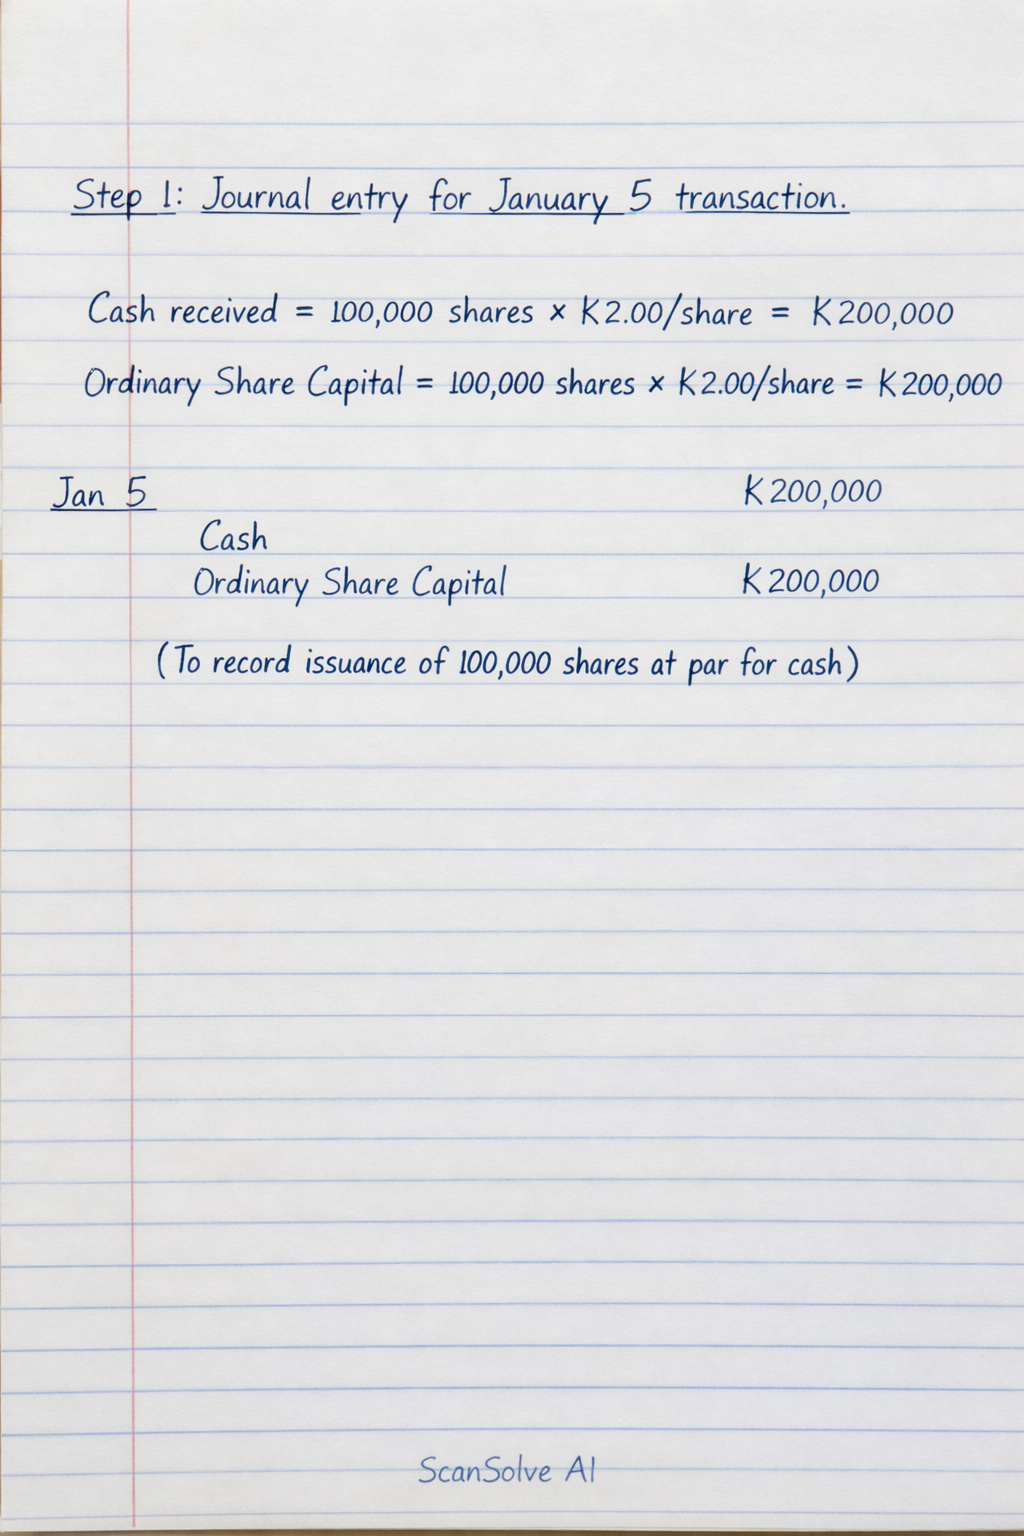 Step 1: Journal entry for January 5 transaction.
Cash received = 100,000 shares × K2.00/share = K200,000
Ordinary Share Capital = 100,000 shares × K2.00/share = K200,000
Jan 5 K200,000
Cash
Ordinary Share Capital K200,000
(To record issuance of 100,000 shares at par for cash)
ScanSolve AI